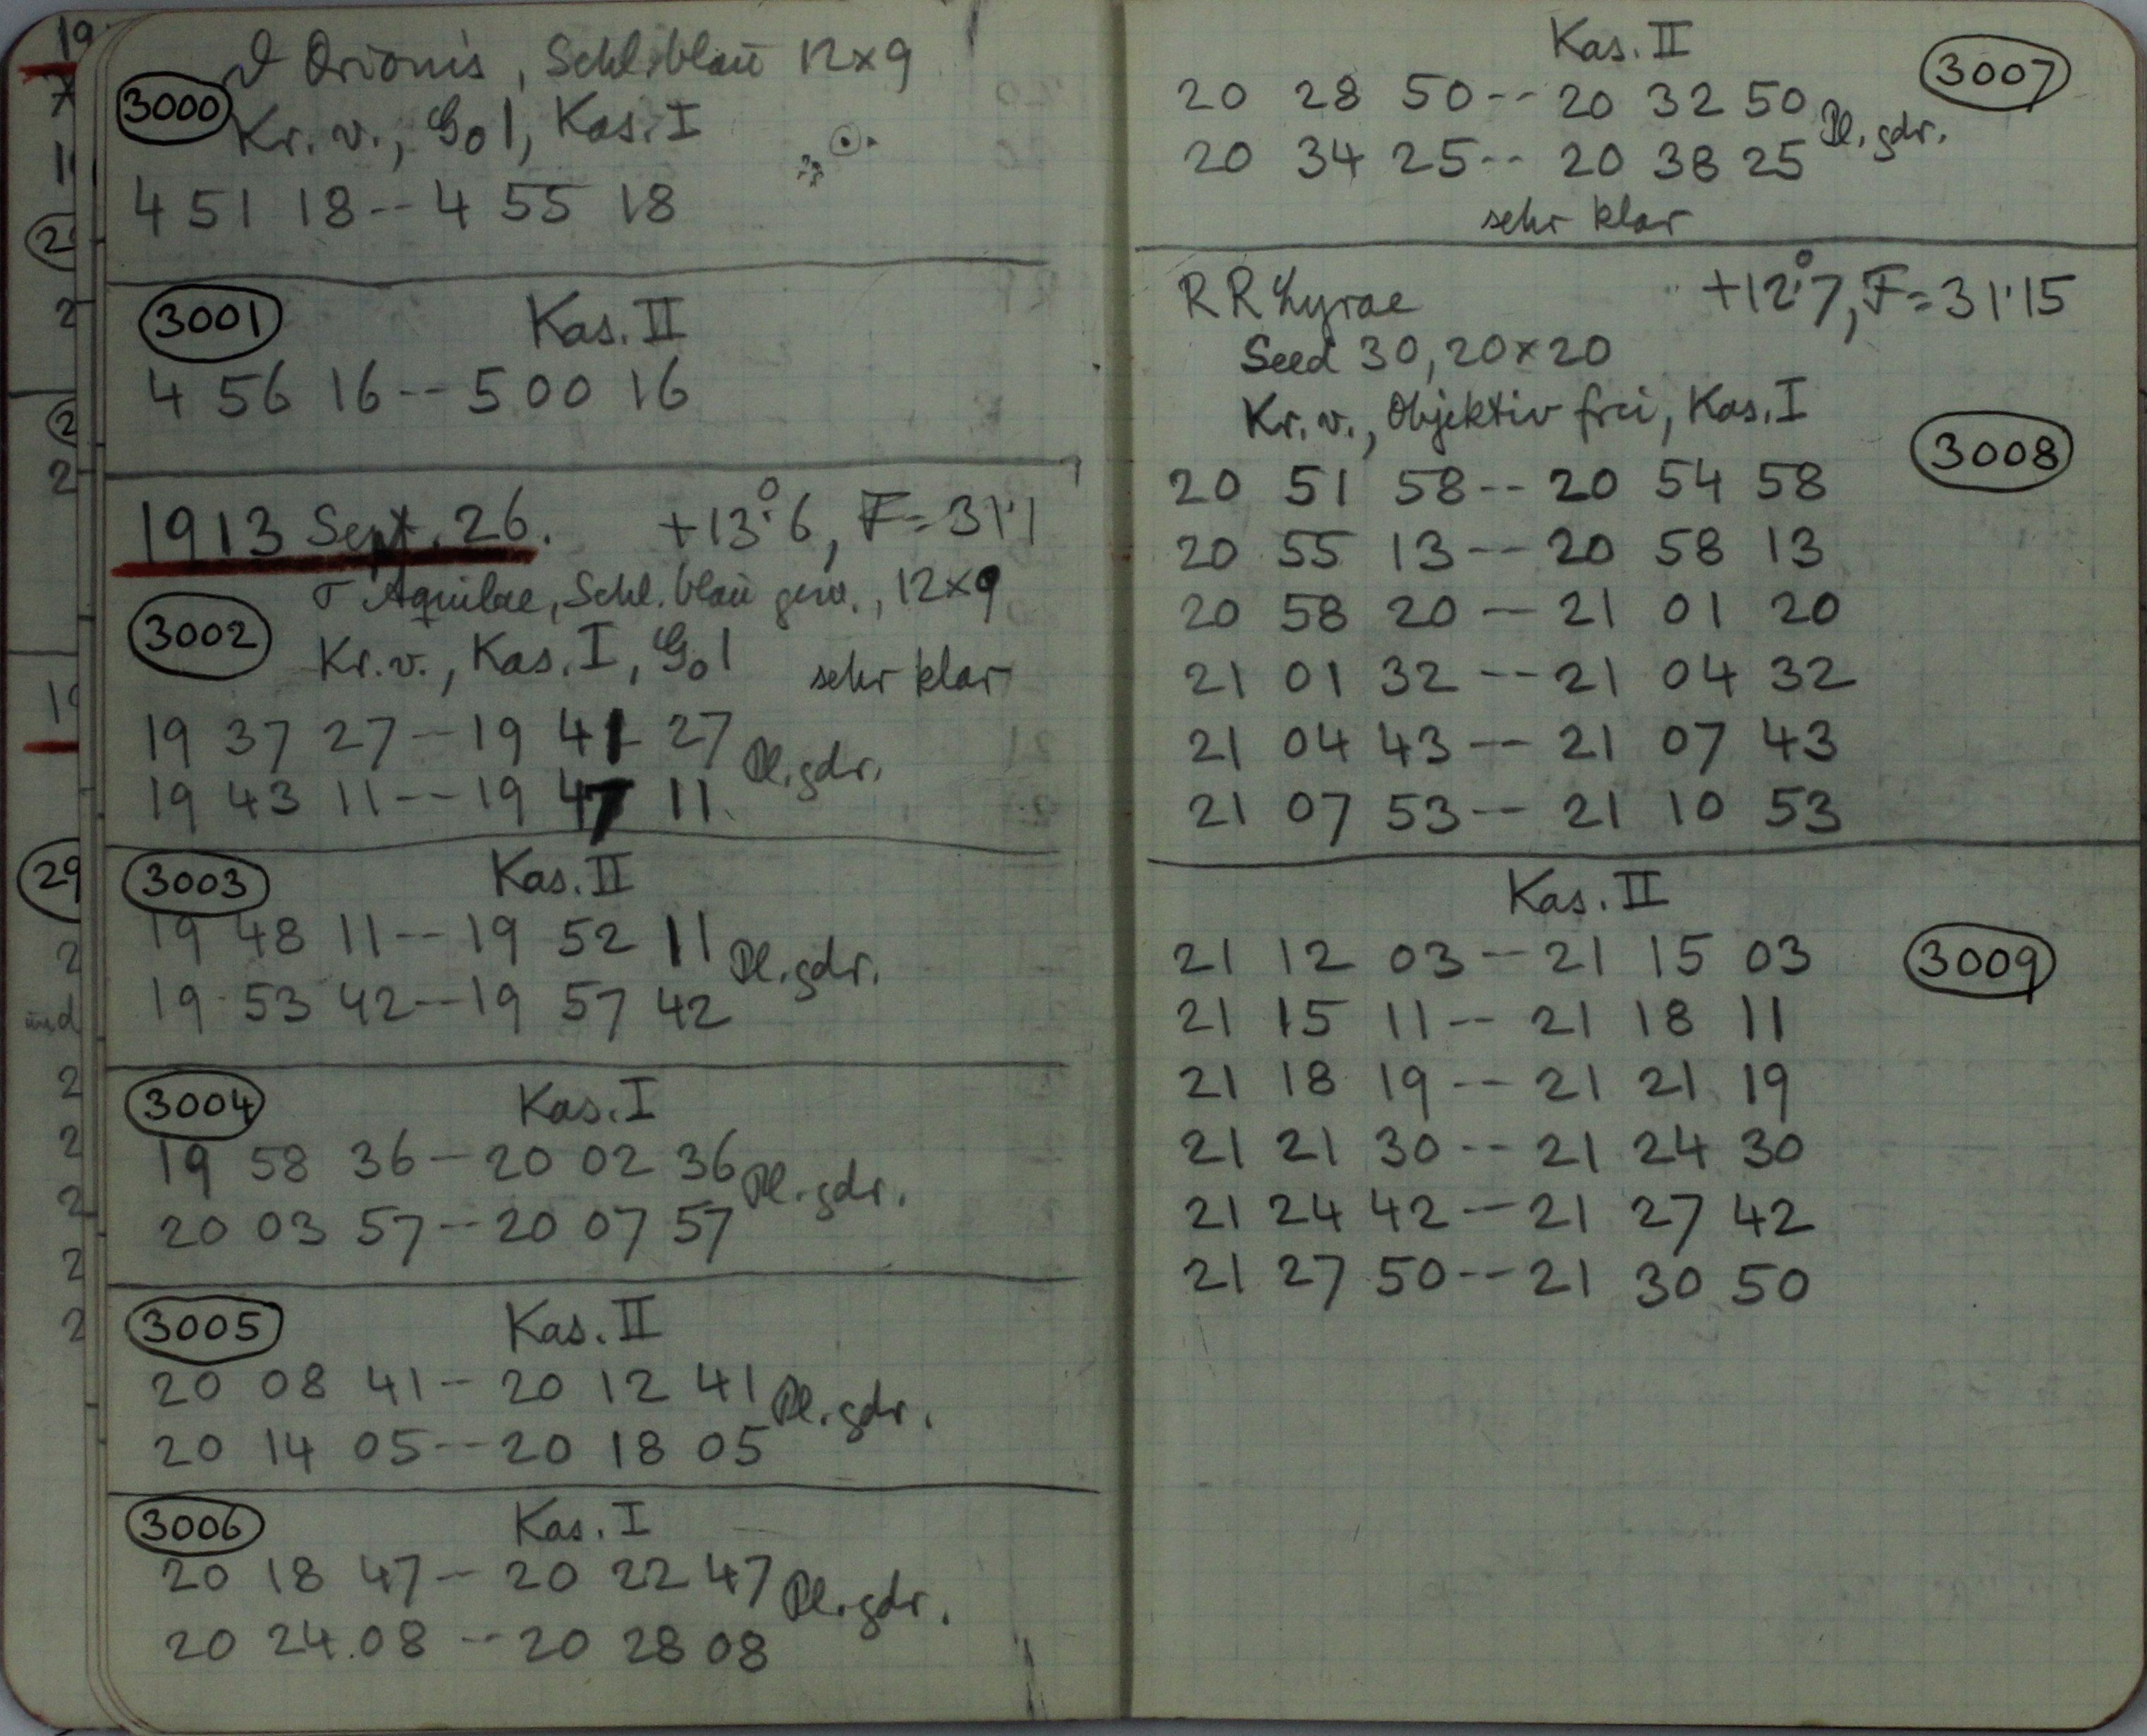 ϑ Orionis, Schl. blau 12×9
3000
Kr. v., G01, Kas. I
4 51 18 -- 4 55 18
3001 Kas. II
4 56 16 -- 5 00 16
1913 Sept. 26. +13°.6, F = 31.1
σ Aquilae, Schl. blau gew., 12×9
3002
Kr. v., Kas. I, G01 sehr klar
19 37 27 -- 19 41 27
Pl. gdr.
19 43 11 -- 19 47 11
3003 Kas. II
19 48 11 -- 19 52 11
Pl. gdr.
19 53 42 -- 19 57 42
3004 Kas. I
19 58 36 -- 20 02 36
Pl. gdr.
20 03 57 -- 20 07 57
3005 Kas. II
20 08 41 -- 20 12 41
Pl. gdr.
20 14 05 -- 20 18 05
3006 Kas. I
20 18 47 -- 20 22 47
Pl. gdr.
20 24 08 -- 20 28 08
Kas. II 3007
20 28 50 -- 20 32 50
Pl. gdr.
20 34 25 -- 20 38 25
sehr klar
RR Lyrae +12°.7, F = 31.15
Seed 30, 20×20
Kr. v., Objektiv frei, Kas. I
3008
20 51 58 -- 20 54 58
20 55 13 -- 20 58 13
20 58 20 -- 21 01 20
21 01 32 -- 21 04 32
21 04 43 -- 21 07 43
21 07 53 -- 21 10 53
Kas. II
21 12 03 -- 21 15 03 3009
21 15 11 -- 21 18 11
21 18 19 -- 21 21 19
21 21 30 -- 21 24 30
21 24 42 -- 21 27 42
21 27 50 -- 21 30 50